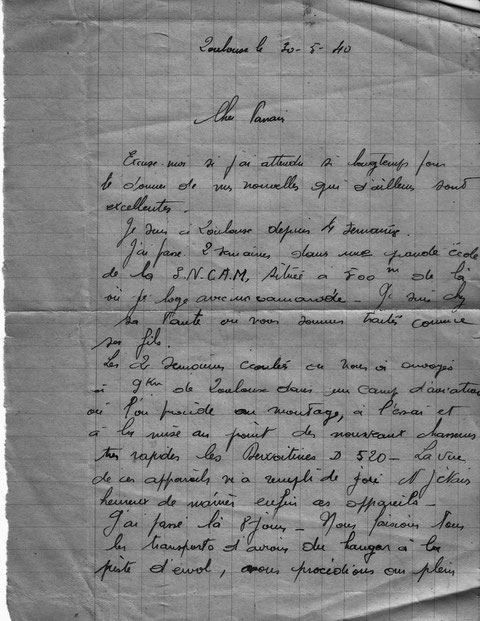 Toulouse le 30-5-40
Cher Parrain
Excuse-moi si j'ai attendu si longtemps pour
te donner de mes nouvelles qui d'ailleurs sont
excellentes.
Je suis à Toulouse depuis 4 semaines.
J'ai passé 2 semaines dans une grande école
de la S.N.C.A.M, située a 500m de là
où je loge avec un camarade - Je suis chez
sa tante où nous sommes traités comme
ses fils.
Les 2 semaines écoulées on nous a envoyés
à 9Km de Toulouse dans un camp d'aviation
où l'on procède au montage, à l'essai et
à la mise au point des nouveaux chasseurs
très rapides les Dewoitines D 520 - La vue
de ces appareils m'a rempli de joie et j'étais
heureux de manier enfin ces appareils -
J'ai passé là 8 jours - Nous faisions tous
les transports d'avions du hangar à la
piste d'envol, nous procédions au plein